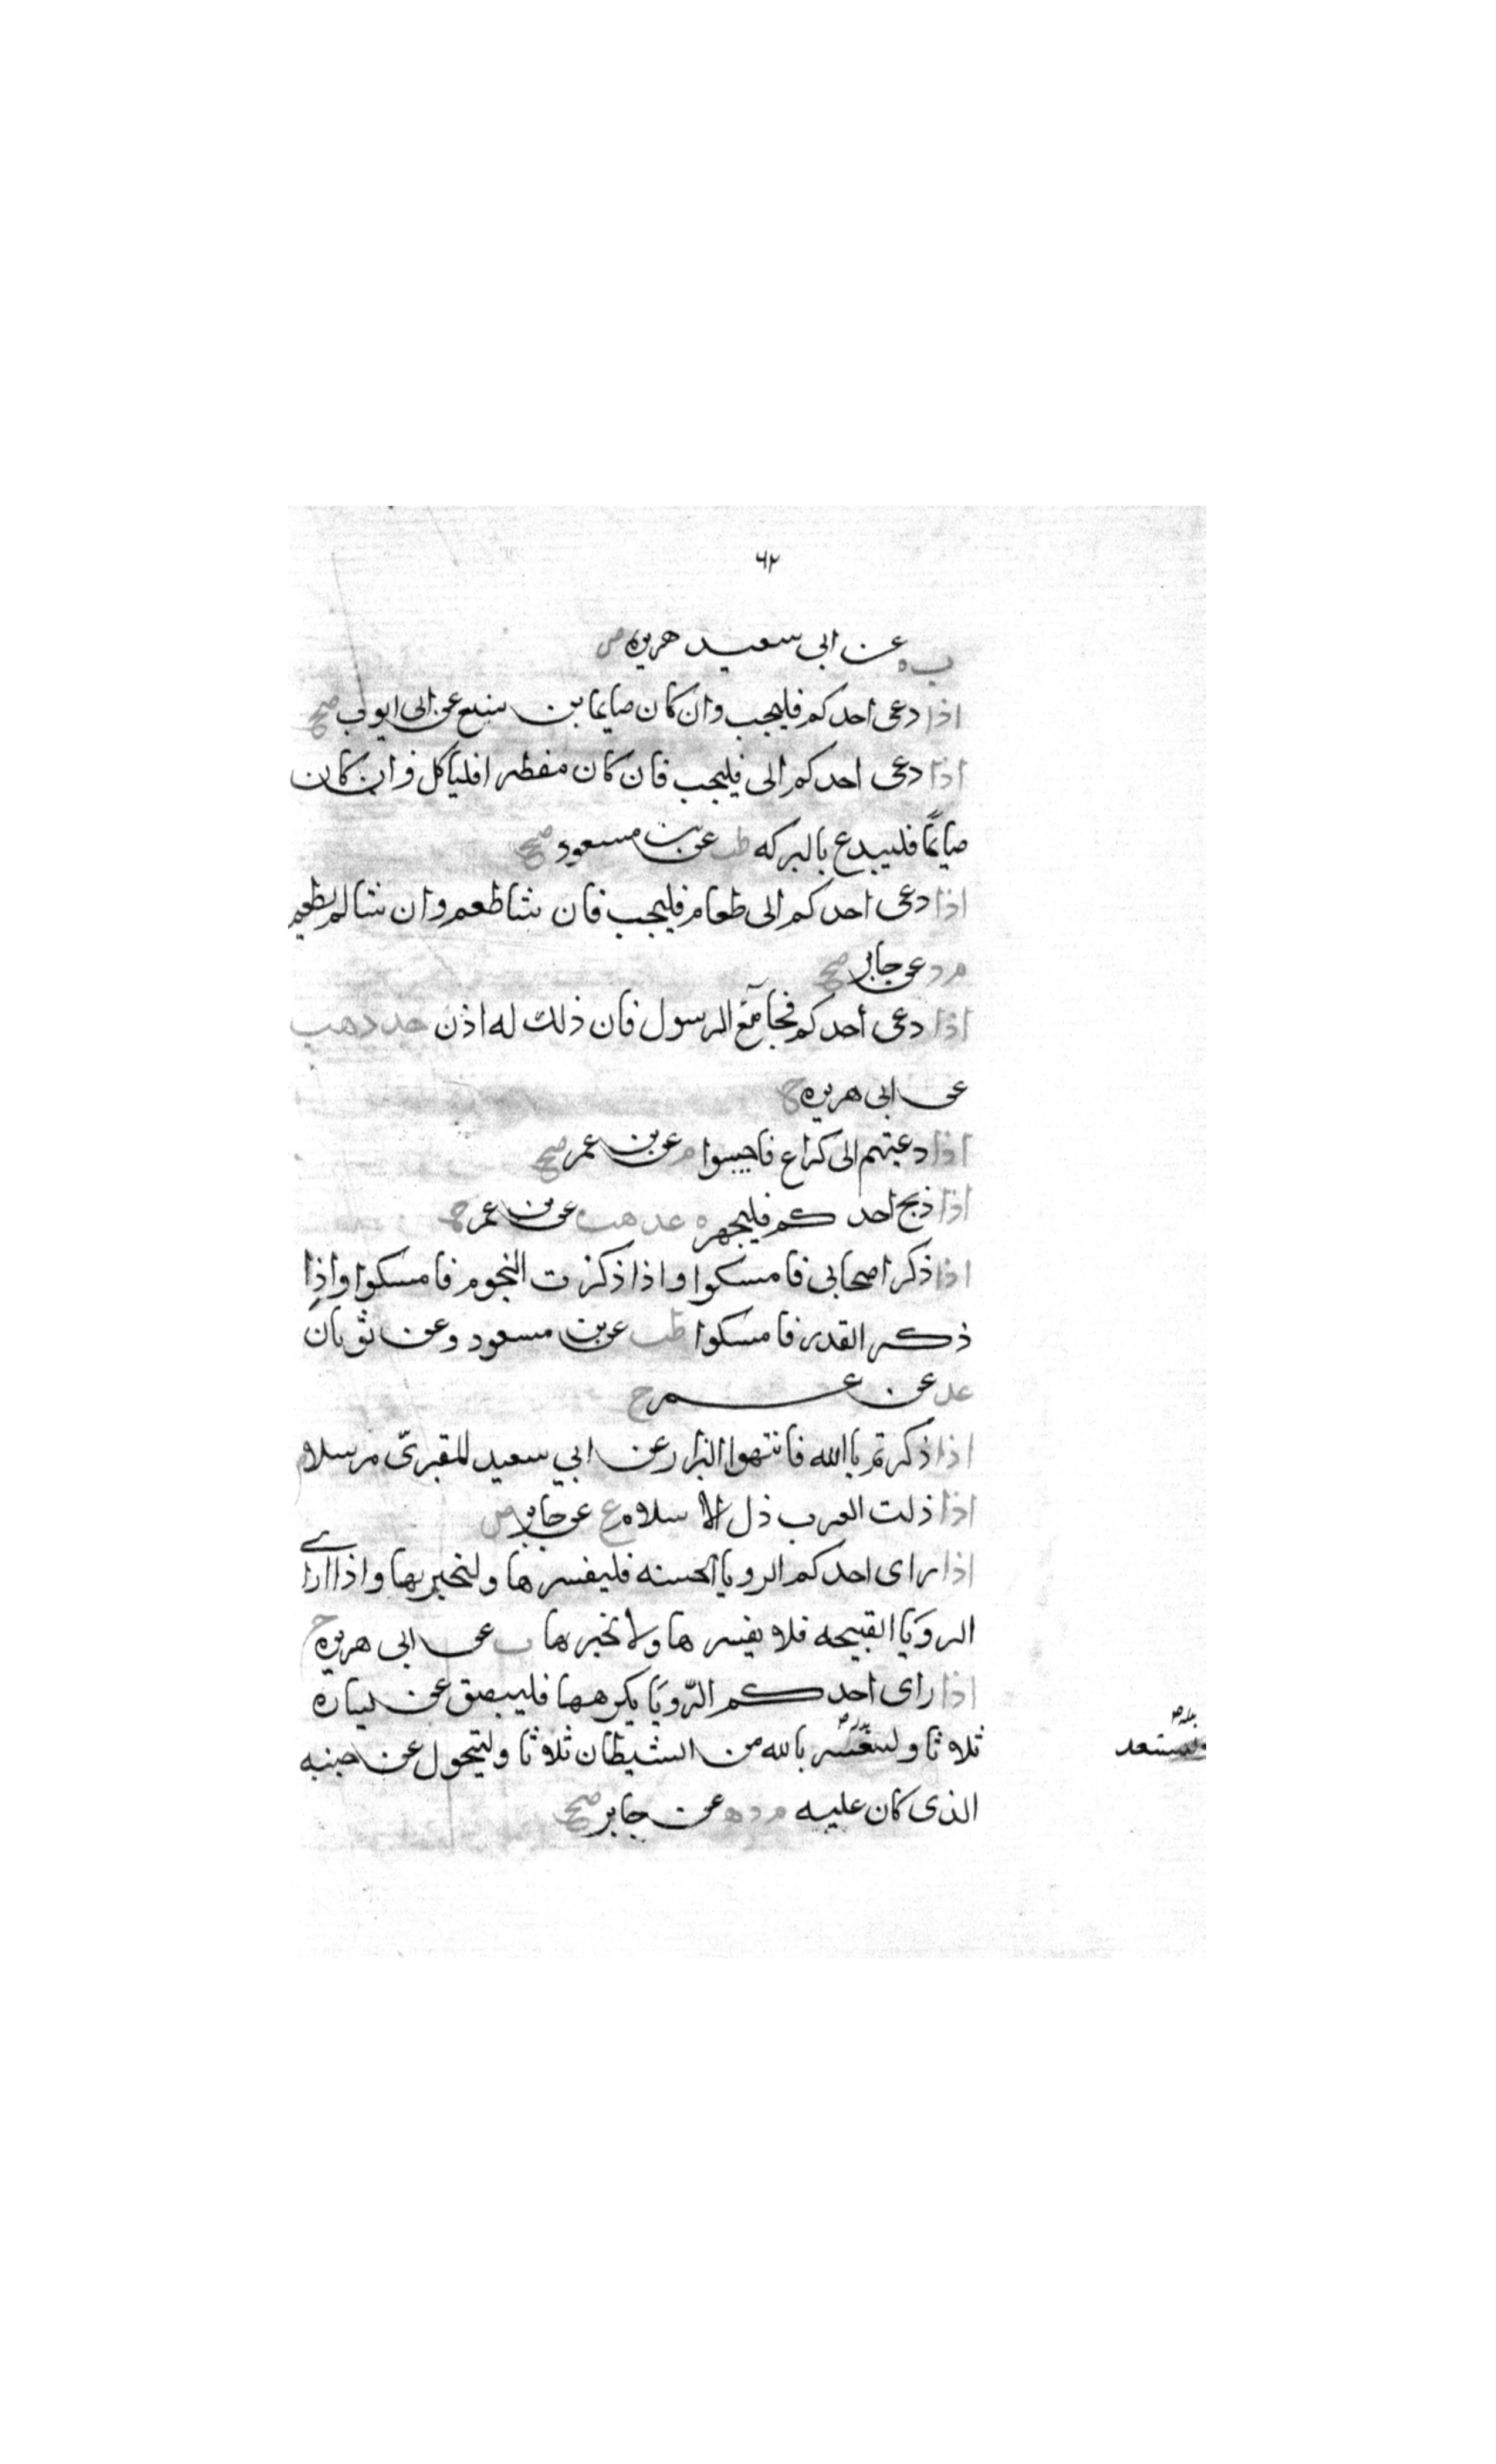 ٦٢
ب ه عن ابى سعيد هريره ض
اذا دعى احدكم فليجب وان كان صايما بن منيع عن ابى ايوب صح
اذا دعى احدكم الى فليجب فان كان مفطرا فلياكل وان كان
صايمًا فليدع بالبركه طب عن بن مسعود صح
اذا دعى احدكم الى طعام فليجب فان شا طعم وان شا لم يطعم
م د عن جابر صح
اذا دعى أحدكم فجا مع الرسول فان ذلك له اذن خد د هب
عن ابى هريره ح
اذا دعيتم الى كراع فاجيبوا م عن بن عمر صح
اذا ذبح احدكم فليجهز ه عد هب عن بن عمر ح
اذا ذكر اصحابى فامسكوا واذا ذكرت النجوم فامسكوا واذا
ذكر القدر فامسكوا طب عن بن مسعود وعن ثوبان
عد عن عمر ح
اذا ذكرتم بالله فانتهوا البزار عن ابي سعيد المقبريّ مرسلا
اذا ذلت العرب ذل الاسلام ع عن جابر ض
اذا راى احدكم الرويا الحسنه فليفسرها وليخبر بها واذا راى
الرويا القبيحه فلا يفسرها ولا يخبر ها ت عن ابى هريره ح
اذا راى احدكم الرّويَا يكرهها فليبصق عن يساره
ثلاثا بالله من الشيطان ثلاثا وليتحول عن جنبه
وليستعد
الذى كان عليه م د ه عن جابر صح